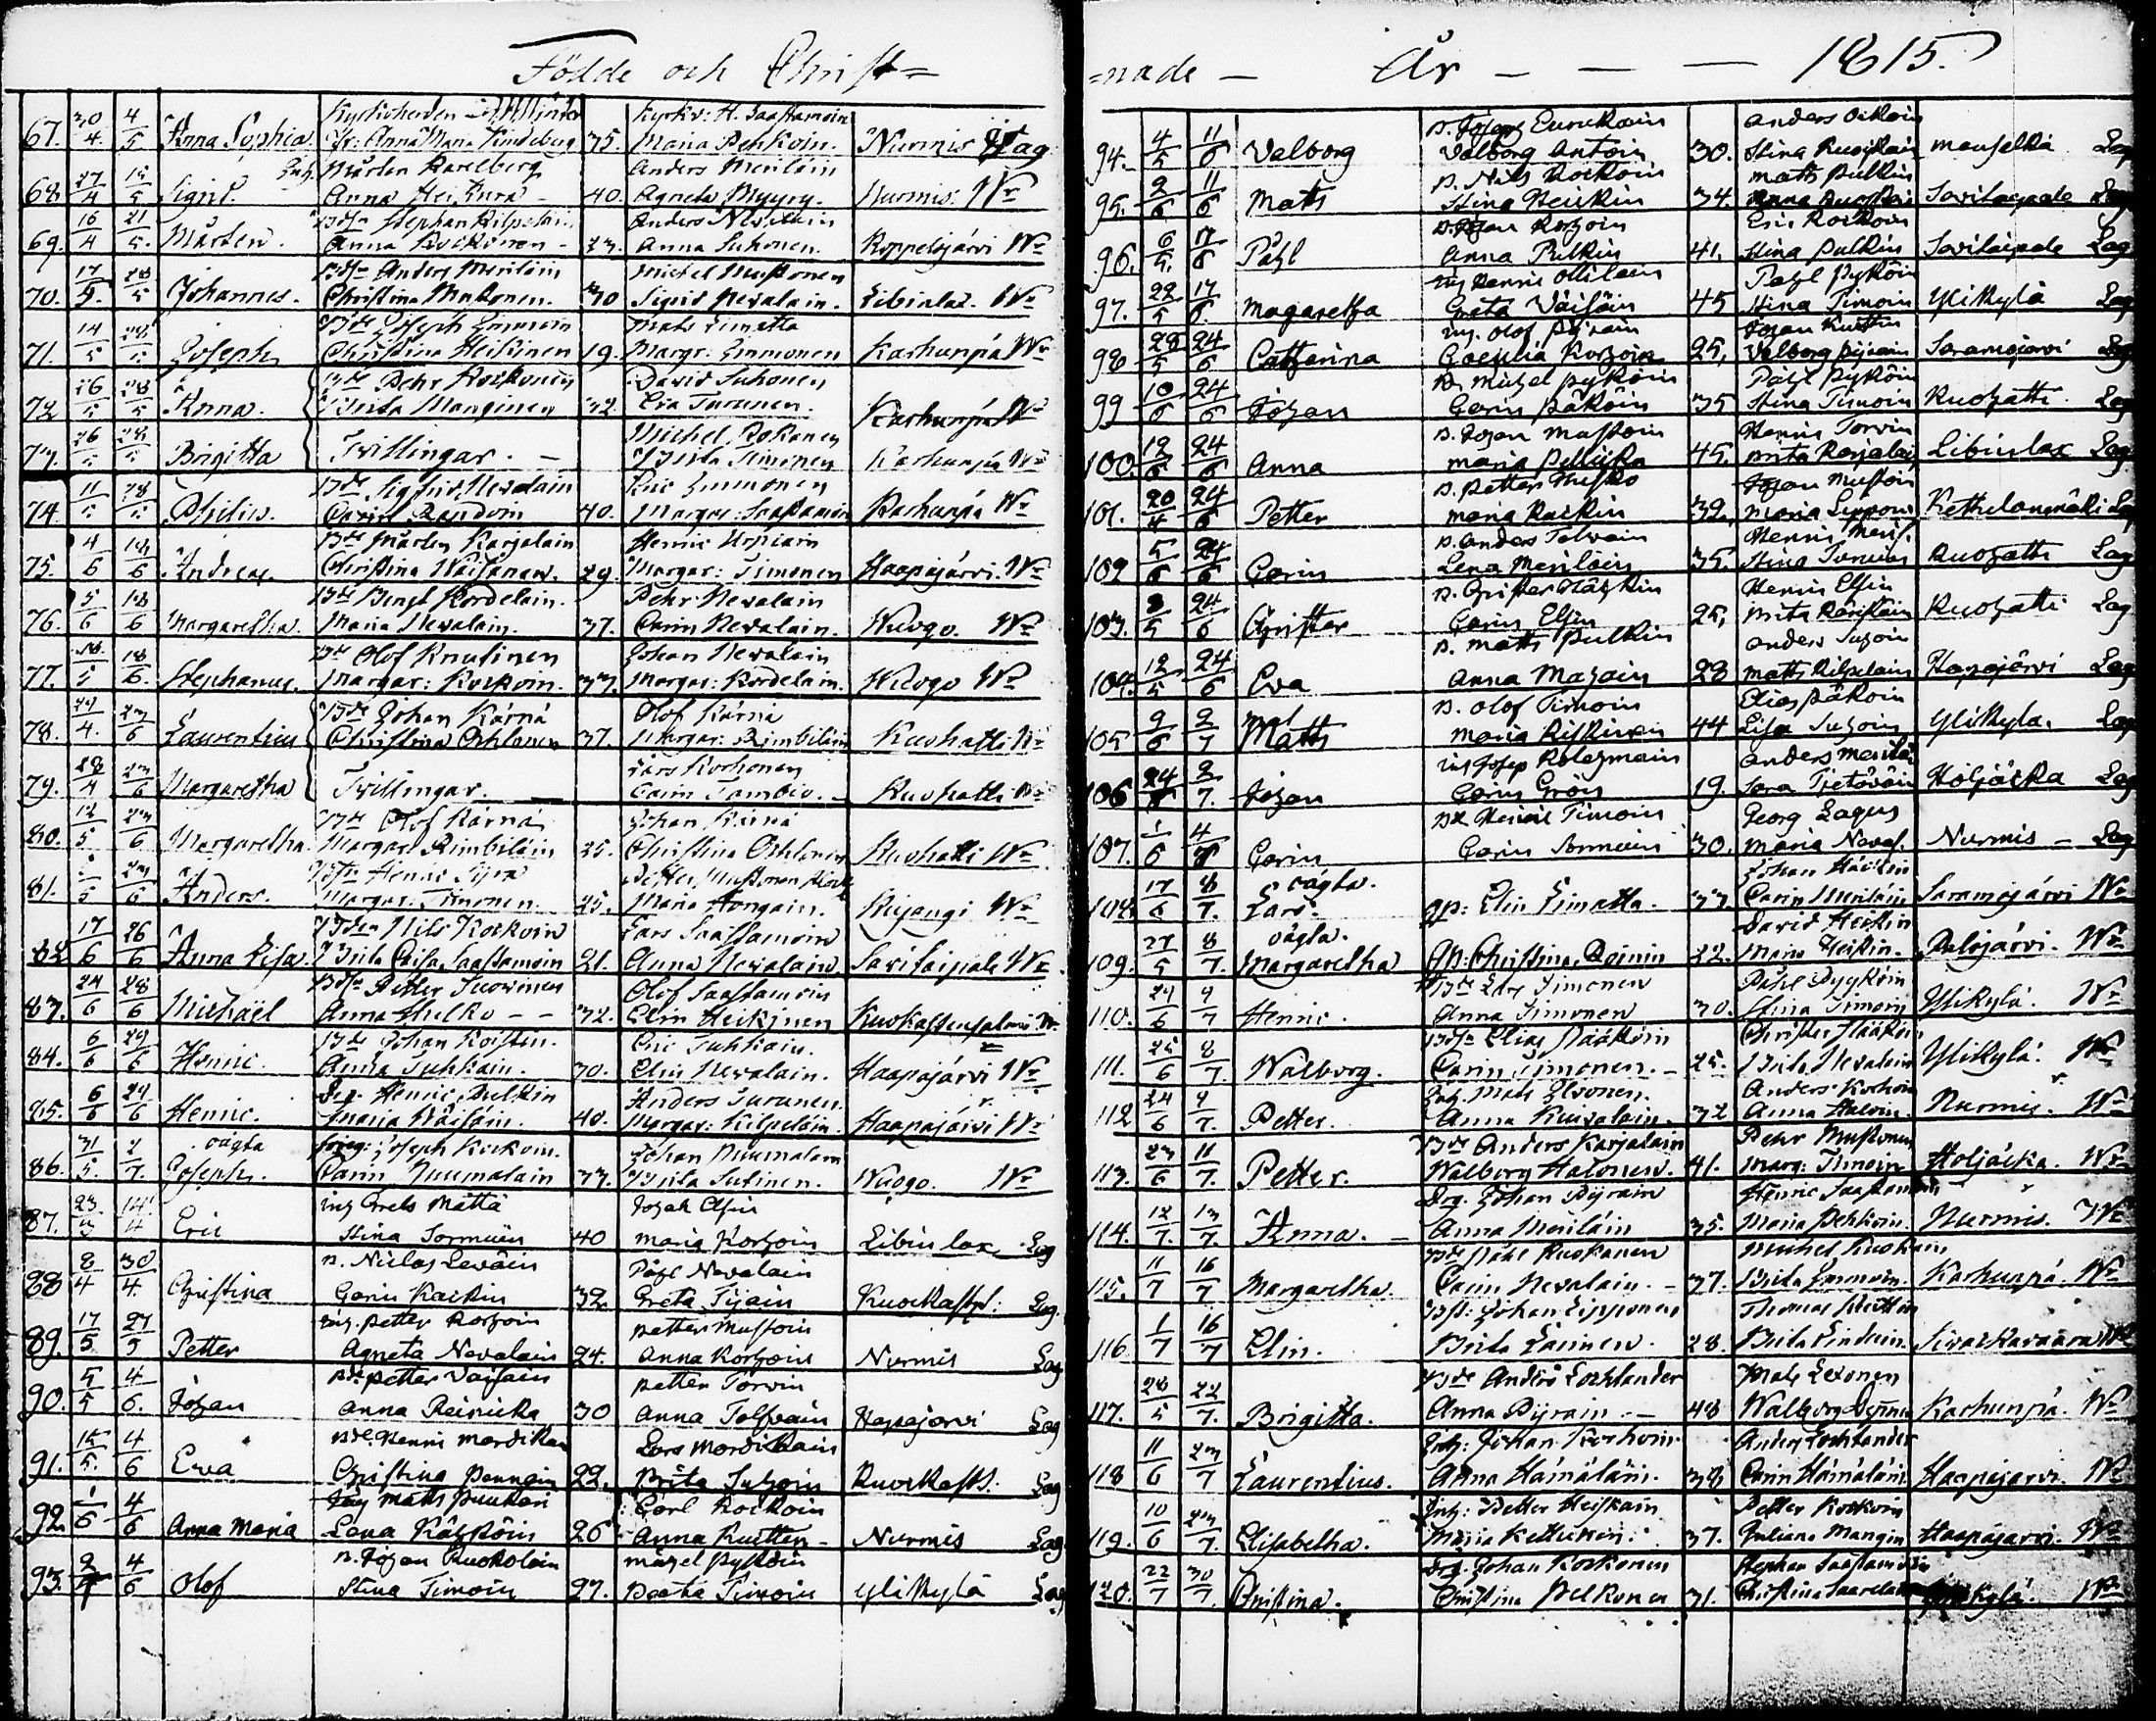 Födde och Christ=
67. 30/4 4/5 Anna Sophia. Kyrkoherden
Fr: Anna Maria Lindeberg 35. Kyrkv: H. Saastamoin Maria Pehkoin. Nurmis Lag
68 27/4 15/5 Sigrid. Inh. Mårten Karelberg
Anna Heikura - 40. Anders Meriläin Agneta Myyry. Nurmis. Wr
69. 16/4 21/5. Mårten. Bdsn Stephan Kilpeläin.
Anna Kockonen - 23. Anders Nevalain Anna Suhonen. Koppelojärvi Wr
70. 17/5. 28/5 Johannes. Bdsn Anders Meriläin
Christina Mustonen. 30 Michel Mustonen Sigrid Nevalain. Libinlax. Wr
71. 14/5 28/5 Joseph Bde Joseph Immoin
Christina Heikinen 19. Mats Limatta Margr: Immonen Karhunpä Wr
72 26/5 28/5 Anna. Bde Pehr Kockonen
Brita Manginen 32 David Suhonen Lisa Turunen. Karhunpä Wr
73. 26/5 28/5 Brigitta Tvillingar. - Michel Rokanen Brita Timonen Karhunpä Wr
74. 11/5 28/5 Philip. Bde Sigfrid Nevalain
Carin Randoin 40. Eric Immonen Margar: Saastamoin Karhunpä Wr
75. 4/6 18/6 Andreas. Bde Mårten Karjalain
Christina Wäisänen. 29. Henric Urpiain Margar: Timonen Haapajärvi. Wr
76. 5/6 18/6 Margaretha. Bde Bengt Kordelain.
Maria Nevalain. 37. Pehr Nevalain Carin Nevalain. Wuogo. Wr
77. 18/5 18/6. Stephanus. Bde Olof Knutinen
Margar: Kockoin. 37. Johan Nevalain Margar: Kordelain. Wuogo Wr
78. 28/4. 23/6 Laurentius Bde Johan Kärnä
Christina Oehlanen 37. Olof Kärnä Margar: Rimbiläin Kuohatti Wr
79. 28/4 23/6 Margaretha Tvillingar. - Lars Korhonen Carin Tambio. - Kuohatti Wr
80. 12/5 23/6 Margaretha. Bde Olof Kärnä
Margar: Rimbiläin 25. Johan Kärnä Christina Oehlanen Kuohatti Wr
81. 23/6 Anders. Bdsn Henric
Margar: Timonen. 25. Petter Mustonen Maria Hongain. Wr
82 17/6 26/6 Anna Lisa. Bdsn Nils Kockoin
Brita Lisa Saastamoin 21. Lars Saastamoin Anna Nevalain. Savikaipale Wr
83. 24/6 28/6 Michaël Bdsn Petter Tuovinen
Anna Hulko - - 32. Olof Saastamoin Elin Heikinen Kuokastensalmi Wr.
84. 6/6 29/6 Henric. Bde Johan Koistin.
Anna Tuhkain. 30. Eric Tuhkain. Elin Nevalain. Haapajärvi Wr
85. 6/6 29/6 Henric. Drg. Henric Pulkin
Maria Wäisäin. 40. Anders Turunen. Margar: Kilpeläin. Haapajärvi Wr
86. 31/5. 2/7. oägta Joseph. Joseph Kockoin.
Carin Nuumalain 33. Johan Nuumalain Brita Sutinen. Wuogo. Wr
87. 23/3 14/4 Eric inh Grels Mattä
Stina Sormuin 40 Johan Elfin maria Korhoin Libinlax Lag
88 8/4 30/4. Christina B. Niclas Leväin
Carin Kackin 32 Påhl Nevalain Greta Tijain Kuockastsl: Lag.
89. 17/5 27/5 Petter inh. petter Korhoin
Agneta Nevalain 24. petter mustoin Anna Korhoin Nurmis Lag
90. 5/5 4/6. Johan Bde petter Väisäin
Anna Reinicka 30 petter Torvin Anna Tolfvain Hapajärvi Lag
91. 15/5. 4/6 Eva Bde. Henric mordikan
Christina penngin 22. Lars mordikain Brita Suhoin Kuockasts. Lag
92 1/6 4/6 Anna Maria Inh matts puukari
Lena Käyhköin 26 Carl Kockoin Anna Kuitten - Nurmis Lag
93. 4/6 Olof B. Johan Ruokolain
Stina Timoin 27. Beata Timoin Ylikylä Lag
=nade - År - - - 1815.
94. 4/5 11/6 Valborg B. Joseph Eurickain
Valborg Antoin 30. Anders Oikoin Stina Ruoskain mansälkä Lag
95. 2/6 11/6 Matts B. Nils Kockoin
Stina Heickin 34. matts pulkin Anna Savikaipale Lag
96. 6/5. 17/6 Påhl B. Johan Korhoin
Anna Pulkin 41. Eric Kockoin Stina pulkin Savikaipale Lag
97. 22/5 17/6. Magaretha inh Henric Ollilain
Greta Väisäin 45 Påhl pyköin Stina Timoin Ylikylä Lag
98 28/5 24/6 Catharina inh. Olof pyrain
Caecilia Korhoin 25. Johan Kuitten Valborg pyrain Saramojärvi Lag
99 10/6 24/6 Johan B. michel pyköin
Carin päköin 35 Påhl pyköin Stina Timoin Kuohatti Lag
100. 12/6 24/6 Anna B. Johan mustoin
maria 45. Henric Torvin Brita Karjalain Libinlax Lag
101. 20/4 24/6 Petter B. petter
maria Kackin 32. Johan mustoin maria Seppoin Kethelanmäki Lag
102 5/6 24/6 Carin B. anders Tolvain
Lena Meriläin 35. Henric Stina Timoin Kuohatti Lag
103. 8/5 24/6 Christer
Carin Elfin 25. Henric Elfin Brita Kuohatti Lag
104. 12/5 24/6 Eva B. matts Pulkin
Anna Mahoin 28 anders Suhoin matts Kilpelain Hapajärvi Lag
105 2/6 2/7 Matts B. Olof Timoin
maria 44 Elias päköin Lisa Suhoin Ylikyla. Lag
106 24/6 2/7. Johan inh Josep Kolehmain
Carin Gröin 19. anders merilä Sara Höljäcka Lag
107. 1/6 4/6 Carin Henric Timoin
Carin Sormuin 30. Georg Lagus maria Neval. Nurmis - Lag
108. 17/6 8/7. oägta. Lars. qp: Elin Limatta. 33 Johan Carin Meriläin Saramojärvi Wr
109. 27/5 8/7. oägta. Margaretha Qp: Christina Roinin 22. David Heikin Maria Heikin. Palojärvi. Wr
110. 24/6 9/7 Henric. Bde Lars Timonen
Anna Timonen 30. Påhl Pyyköin Stina Timoin Ylikylä. Wr
111. 25/6 8/7. Walborg. Bdsn Elias Pääköin
Carin Timonen. - 25. Christer Pääköin Brita Nevalain Ylikylä. Wr
112 24/6 9/7. Petter. Inh. Mats
Anna Kuivalain. 32 Anders Korhoin Anna Nurmis. Wr
113. 23/6 11/7. Petter. Bde Anders Karjalain
Walborg Halonen. 41. Pehr Mustonen Marg: Timoin Höljäcka. Wr
114. 12/7. 13/7. Anna. - Drg. Johan Pyrain
Anna Meriläin 35. Henric Saastamoin Maria Pehkoin. Nurmis. Wr
115. 11/7 16/7 Margaretha. Bde Påhl Ruokanen
Carin Nevalain. - 37. Michel Kuokain Brita Immoin. Karhunpä. Wr
116. 1/7 16/7 Elin. Johan Lipponen
Brita Lainen. 28. Thomas Brita Wr
117. 28/5 22/7. Brigitta. Bde Anders Lochlander
Anna Pyrain. - 48 Mats Lexonen Walborg Karhunpä. Wr
118 11/6 23/7 Laurentius. Inh: Johan Korhoin
Anna Hämäläin. 38 Anders Lochlander Carin Hämäläin Haapajarvi. Wr
119. 10/6 23/7. Elisabetha. Inh: Petter Heiskain
Maria Kettunen. 37. Petter Kockoin Juliana Mangin Haapajarvi. Wr
120. 22/7 30/7. Christina. Drg. Johan Kockonen
Christina Pelkonen 31. Stephan Saastamoin Christina Saarelain Ylikylä. Wr